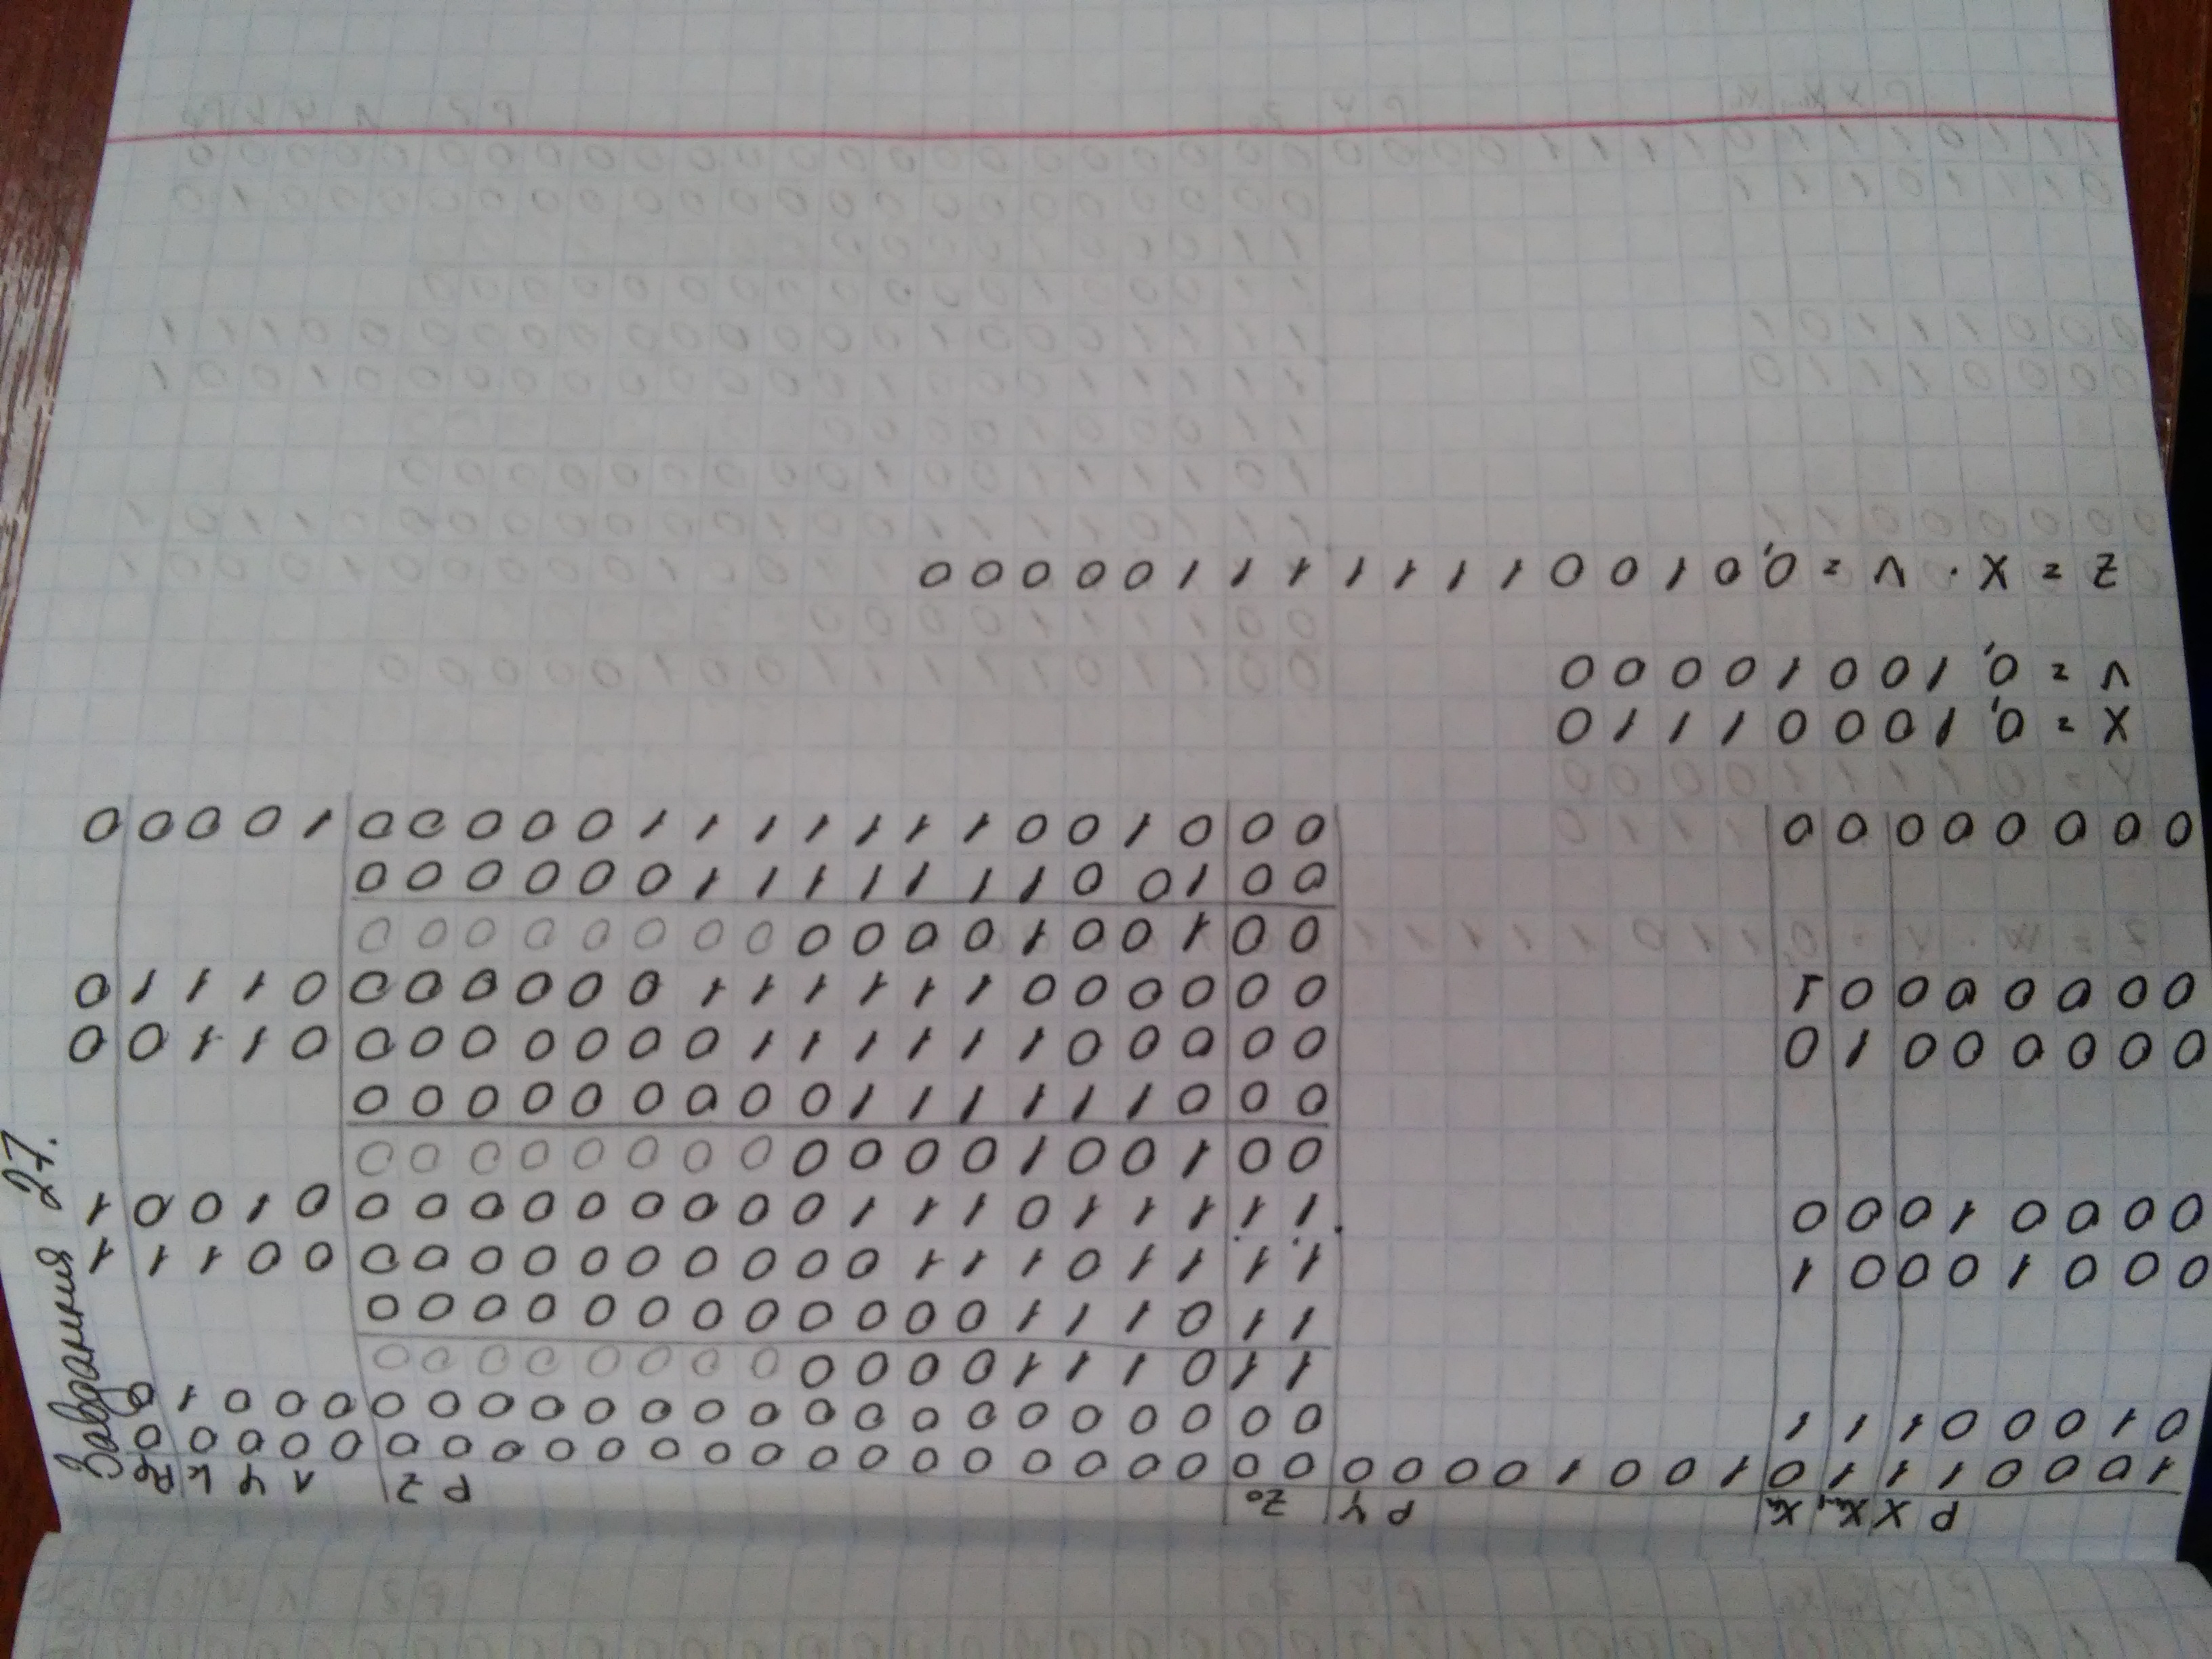 Завдання 27.
P X Xn-1 Xn P Y Z0 P Z Л Ч k Pφ
1 0 0 0 1 1 1 0 1 0 0 1 0 0 0 0 0 0 0 0 0 0 0 0 0 0 0 0 0 0 0 0 0 0 0 0 0 0 0
0 1 0 0 0 1 1 1 0 0 0 0 0 0 0 0 0 0 0 0 0 0 0 0 0 0 0 0 0 1 0
1 1 0 1 1 1 0 0 0 0 0 0 0 0 0 0 0 0
1 1 0 1 1 1 0 0 0 0 0 0 0 0 0 0 0 0
0 0 0 1 0 0 0 1 1. 1. 1 1 0 1 1 1 0 0 0 0 0 0 0 0 0 0 0 0 1 1 1
0 0 0 0 1 0 0 0 1 1 1 1 1 0 1 1 1 0 0 0 0 0 0 0 0 0 0 1 0 0 1
0 0 1 0 0 1 0 0 0 0 0 0 0 0 0 0 0 0
0 0 0 1 1 1 1 1 1 0 0 0 0 0 0 0 0 0
0 0 0 0 0 0 1 0 0 0 0 0 0 1 1 1 1 1 1 0 0 0 0 0 0 0 0 1 1 0 0
0 0 0 0 0 0 0 1 0 0 0 0 0 0 1 1 1 1 1 1 0 0 0 0 0 0 0 1 1 1 0
0 0 1 0 0 1 0 0 0 0 0 0 0 0 0 0 0 0
0 0 1 0 0 1 1 1 1 1 1 1 0 0 0 0 0 0
0 0 0 0 0 0 0 0 0 0 0 1 0 0 1 1 1 1 1 1 1 0 0 0 0 0 1 0 0 0 0
X = 0, 1 0 0 0 1 1 1 0
V = 0, 1 0 0 1 0 0 0 0
Z = X · V = 0, 0 1 0 0 1 1 1 1 1 1 1 0 0 0 0 0